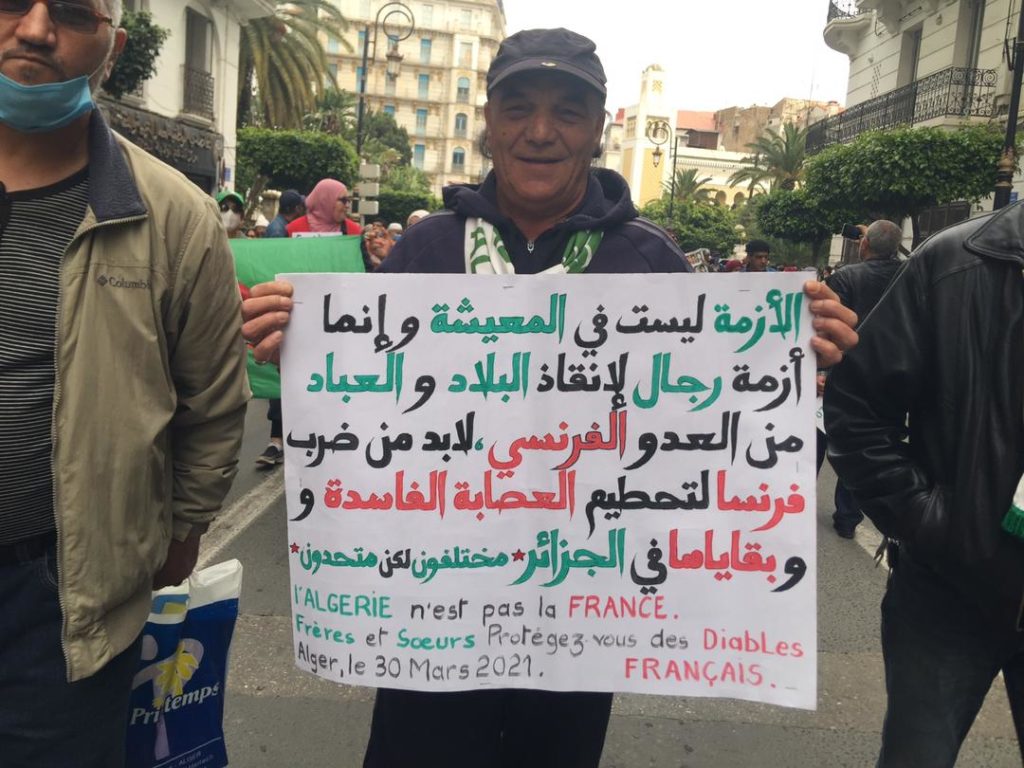 الأزمة ليست في المعيشة و إنما
أزمة رجال لإنقاذ البلاد و العباد
من العدو الفرنسي، لابد من ضرب
فرنسا لتحطيم العصابة الفاسدة و
و بقاياها في الجزائر * مختلفون لكن متحدون *
l'ALGERIE n'est pas la FRANCE.
Frères et Sœurs Protégez-vous des Diables
Alger, le 30 Mars 2021. FRANÇAIS.
Columbia
Printemps
ALGER